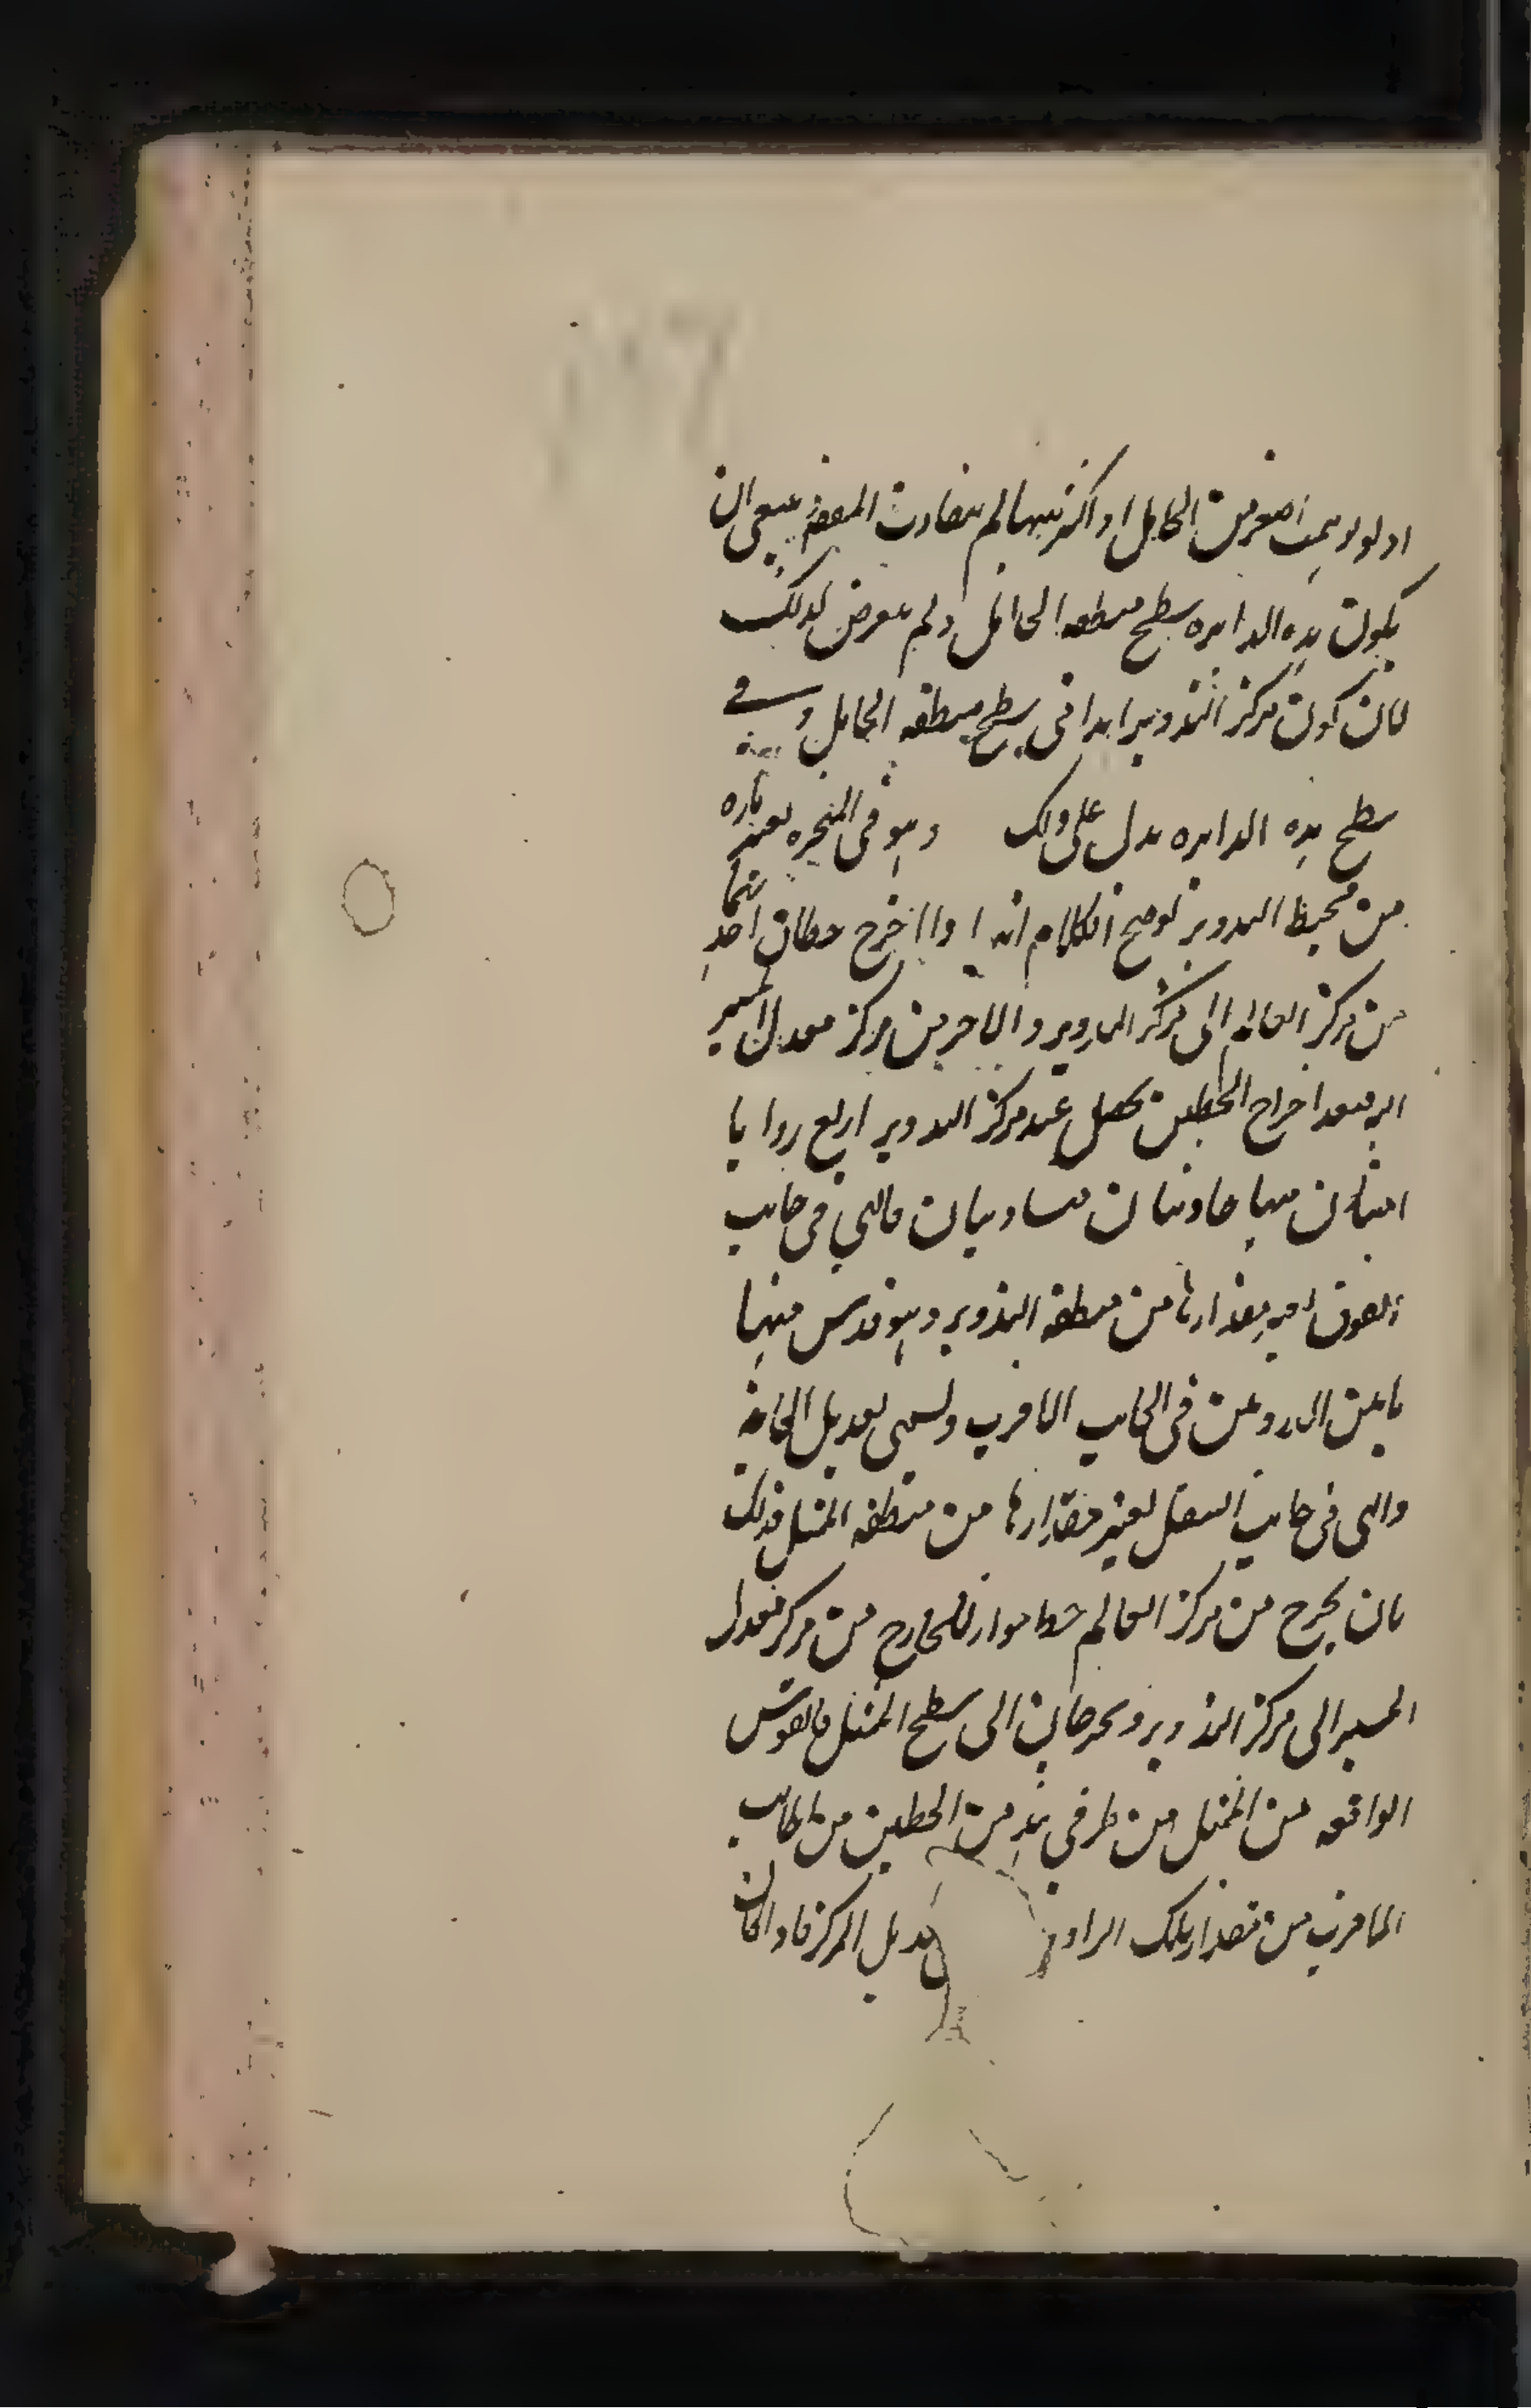 اذ لو توهمت اصغر من الحامل او اكثر منها لم يتفاوت المقصود ينبغي ان
يكون هذه الدايره سطح منطقه الحامل ولم يتعرض لذلك
لان كون مركز التدوير ابدا في سطح منطقه الحامل و في
سطح هذه الدايره يدل على ذلك وهو في المتحيره يعتبر تاره
من محيط التدوير توضيح الكلام انه اذا اخرج خطان احدهما
من مركز العالم الى مركز التدوير والاخر من مركز معدل المسير
اليه فبعد اخراج الخطين يحصل عند مركز التدوير اربع زوايا
اثنتان منها حادتان متساويتان فالتي في جانب
الفوق اخذ مقدارها من منطقه التدوير وهو قوس منها
ما بين الذروتين في الجانب الاقرب ويسمى تعديل الخاصة
والتي في جانب السفل يعتبر مقدارها من منطقه الممثل وذلك
بان يخرج من مركز العالم خط مواز للخارج من مركز معدل
المسير الى مركز التدوير و يخرجان الى سطح الممثل فالقوس
الواقعه من الممثل بين طرفي هذين الخطين من الجانب
الاقرب من مقدار تلك الزاوية تعديل المركز فاذا كان